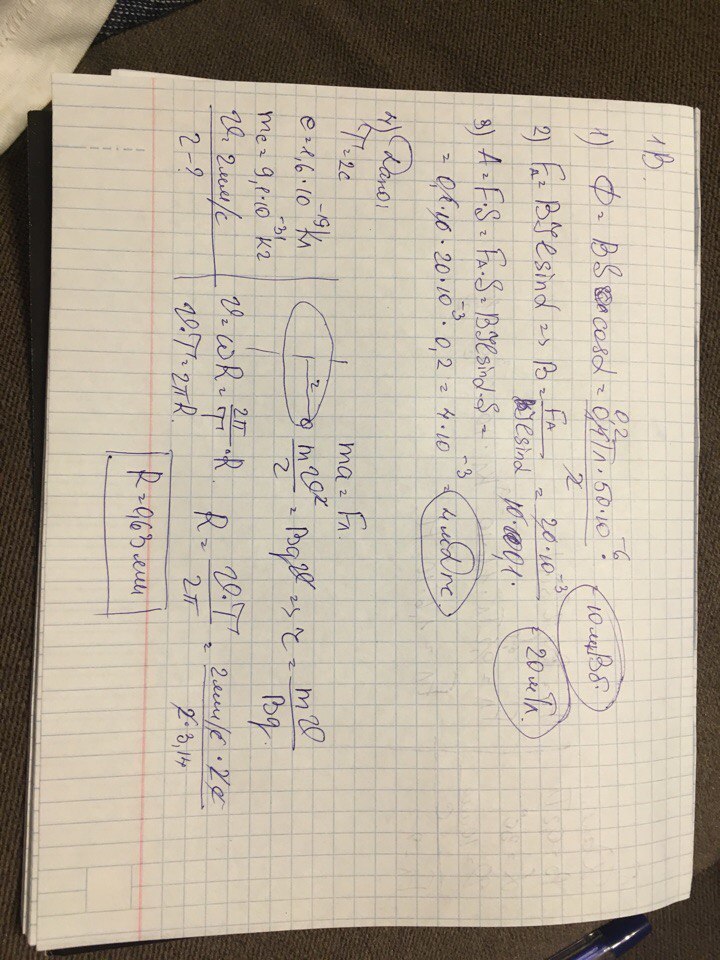 1В.
1) Ф = BS cosα = 0,2 Тл · 50·10⁻⁶ · = 10 мкВб.
2) Fᴀ = BIl sinα => B = Fᴀ / Il sinα = 20·10⁻³ / 10·0,1 · = 20 мТл.
3) A = F·S = Fᴀ·S = BIl sinα·S =
= 0,1·10·20·10⁻³·0,2 = 4·10⁻³ = 4 мДж.
4) Дано:
T = 2с
e = 1,6·10⁻¹⁹ Кл
mₑ = 9,1·10⁻³¹ кг
υ = 2мм/с
r - ?
ma = Fл
mυ² / r = Bqυ => r = mυ / Bq.
υ = ωR = 2π / T · R.
υ·T = 2πR.
R = υ·T / 2π = 2мм/с · 2с / 2·3,14
R = 0,63 мм